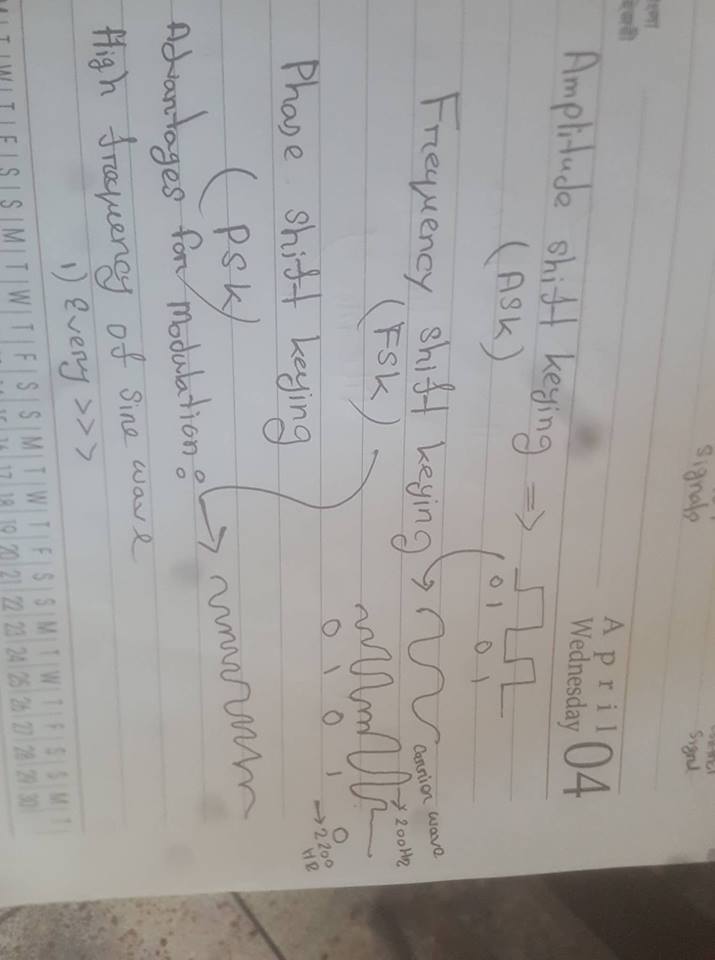 Signals
Signal
April 04
Wednesday
Amplitude shift keying =>
(ASK)
0 1 0 1
Frequency shift keying
(FSK)
Carrier wave
→ 200Hz
0 1 0 1 0
→ 2200
HZ
Phase shift keying
(PSK)
Advantages for modulation:
High frequency of sine wave
1) Every >>>
M T W T F S S M T W T F S S M T W T F S S M T W T F S S M T
17 18 19 20 21 22 23 24 25 26 27 28 29 30